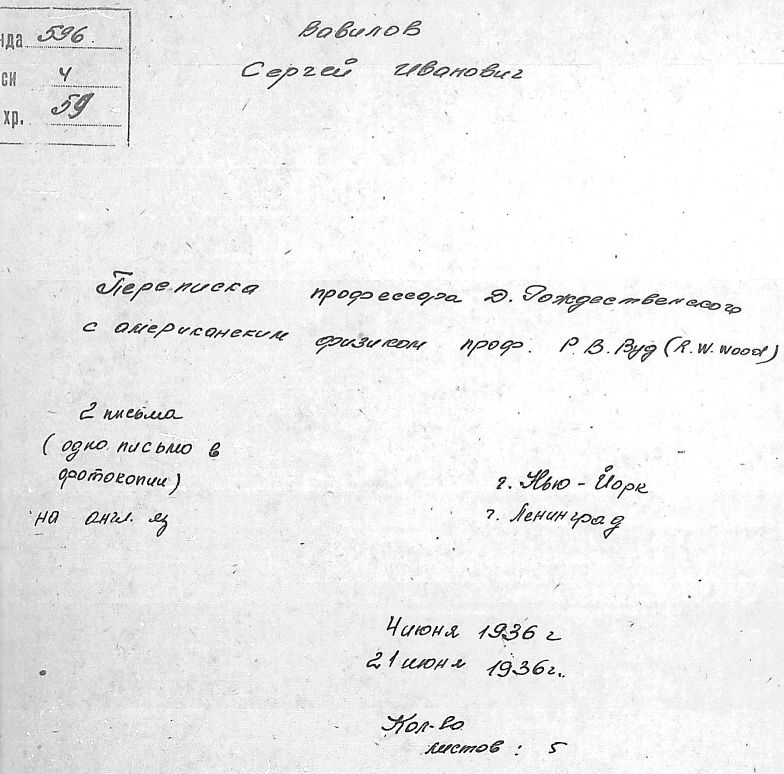 нда 596
си 4
хр. 59
Вавилов
Сергей Иванович
Переписка профессора Д. Рождественского
с американским физиком проф. Р. В. Вуд (R. W. Wood)
2 письма
(одно письмо в
фотокопии)
на англ. яз
г. Нью-Йорк
г. Ленинград
4 июня 1936 г
21 июня 1936 г.
Кол-во
листов: 5